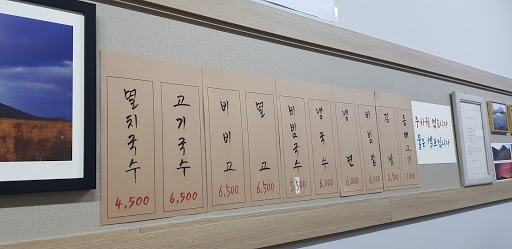 멸치국수
4,500
고기국수
6,500
비비고
6,500
멸고
6,500
비빔국수
5,500
냉국수
6,000
냉면
6,000
비빔밥
6,000
김밥
2,500
돔베고기
주차권 없습니다
물은 셀프입니다